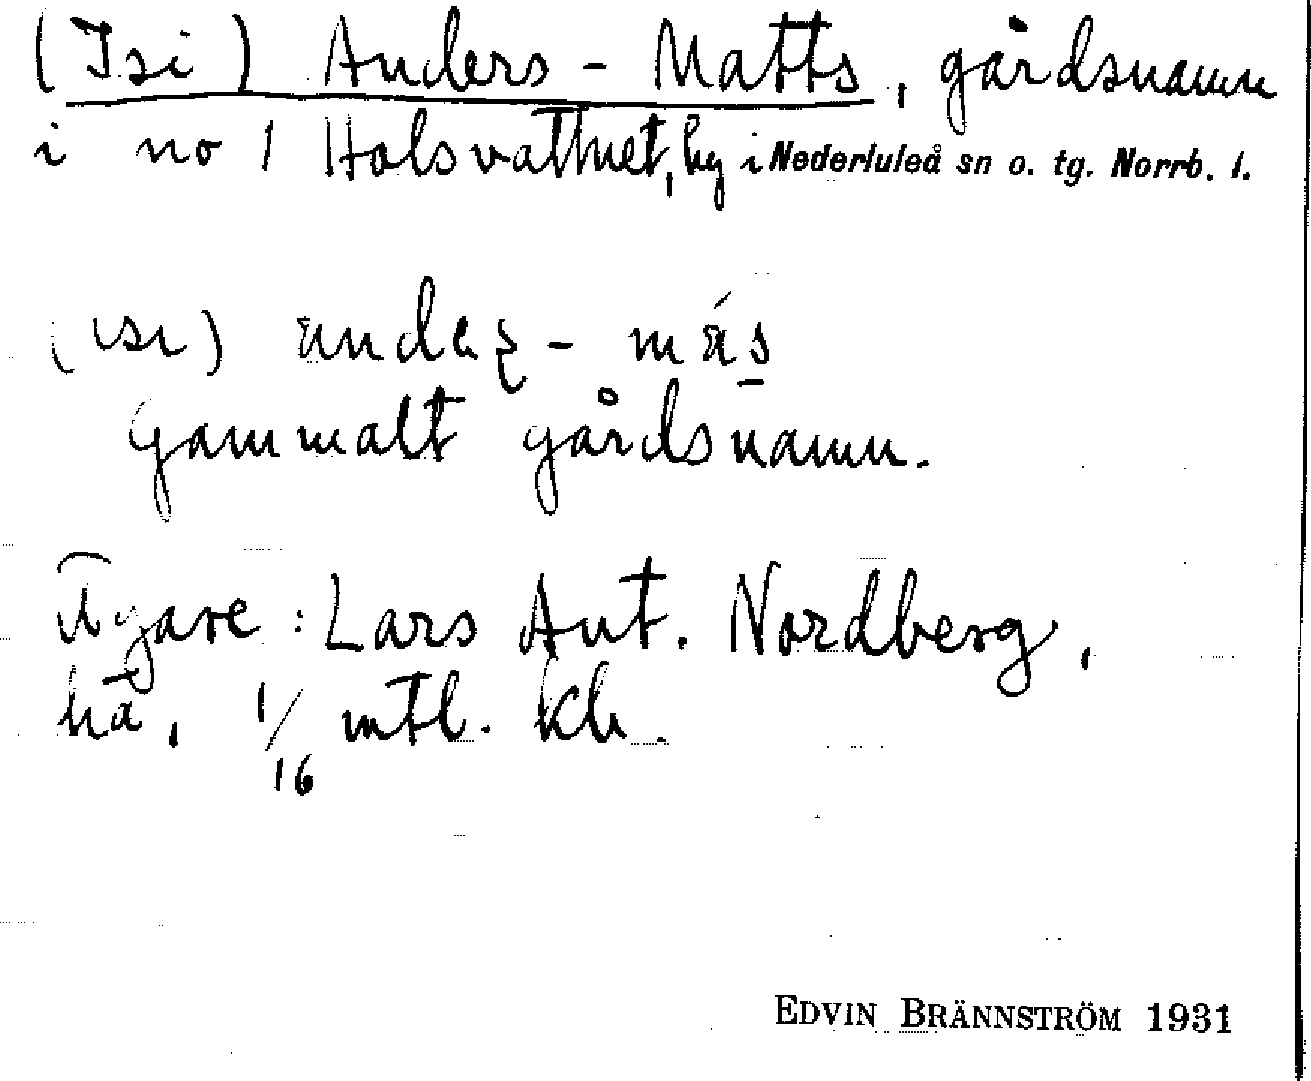 (Isi) Anders-Matts, gårdsnamn
i no 1 Holsvattnet, by i Nederluleå sn o. tg. Norrb. l.
(ısı)
gammalt gårdsnamn.
Ägare: Lars Ant. Nordberg,
hä, 1/16 mtl. kr.
EDVIN BRÄNNSTRÖM 1931